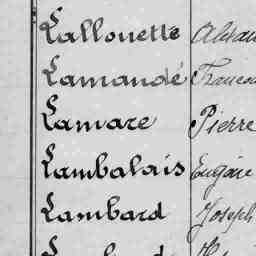 Lallouette
Lamandé
Lamare Pierre
Lambalais Eugène
Lambard Joseph